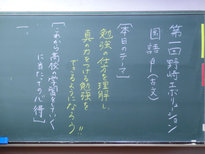 第一回野崎エボリューション
国語β(古文)
[本日のテーマ]
勉強の仕方を理解し、
真の力をつける勉強を
できるようになろう!!
[これから高校の学習をしていく
に当たっての心得]
一、